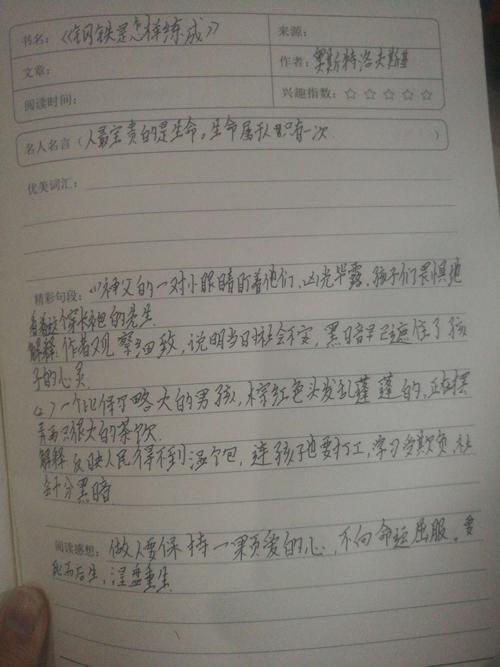 书名：《钢铁是怎样练成》
来源：
文章：
作者：奥斯特洛夫斯基
阅读时间：
兴趣指数：☆ ☆ ☆ ☆ ☆
名人名言（人最宝贵的是生命。生命属于人只有一次 ）
优美词汇：
精彩句段：(1)神父的一对小眼睛盯着他们，凶光毕露，孩子们畏惧地
看着这个穿长袍的先生
解释：作者观察细致，说明当日社会不安，黑暗早已遮住了孩
子的心灵
(2)一个比保尔略大的男孩，棕红色头发乱蓬蓬的，正在摆
弄两只很大的茶饮
解释 反映人民得不到温饱，连孩子也要打工，学习多欺负 社
会十分黑暗
阅读感想：做人要保持一颗爱的心，不向命运屈服。要
死而后生，涅盘重生